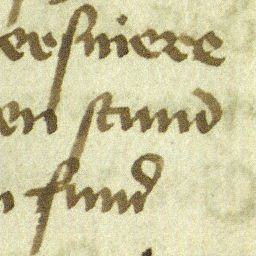 ersniere
en stund
n fund